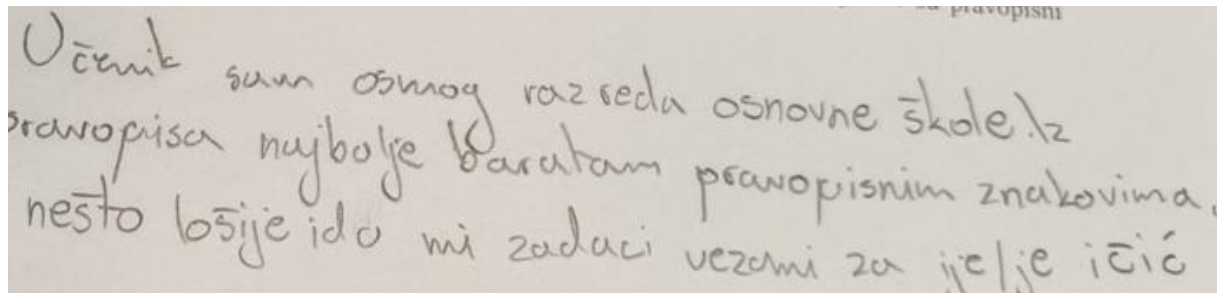 pravopisni
Učenik sam osmog razreda osnovne škole. Iz
pravopisa najbolje baratam pravopisnim znakovima,
nešto lošije ido mi zadaci vezani za ije/je i č i ć